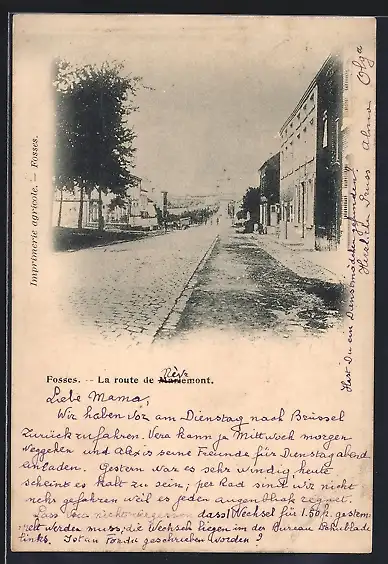 Imprimerie agricole. — Fosses.
Fosses. — La route de Mariemont.
Liebe Mama,
Wir haben vor am Dienstag nach Brüssel
zurück zu fahren. Vera kann ja Mittwoch morgen
weggehen und Alexis seine Freunde für Dienstag abend
einladen. Gestern war es sehr windig heute
scheint es kalt zu sein; per Rad sind wir nicht
mehr gefahren weil es jeden Augenblick regnet.
Lass dass 1 Wechsel für 1.50 fr. gestem-
pelt werden muss; die Wechsel liegen in der Bureau Schublade
links. Ist an geschrieben worden?
Hast Du ein Dienstmädchen gefunden?
Herzliche Grüsse Alma Olga